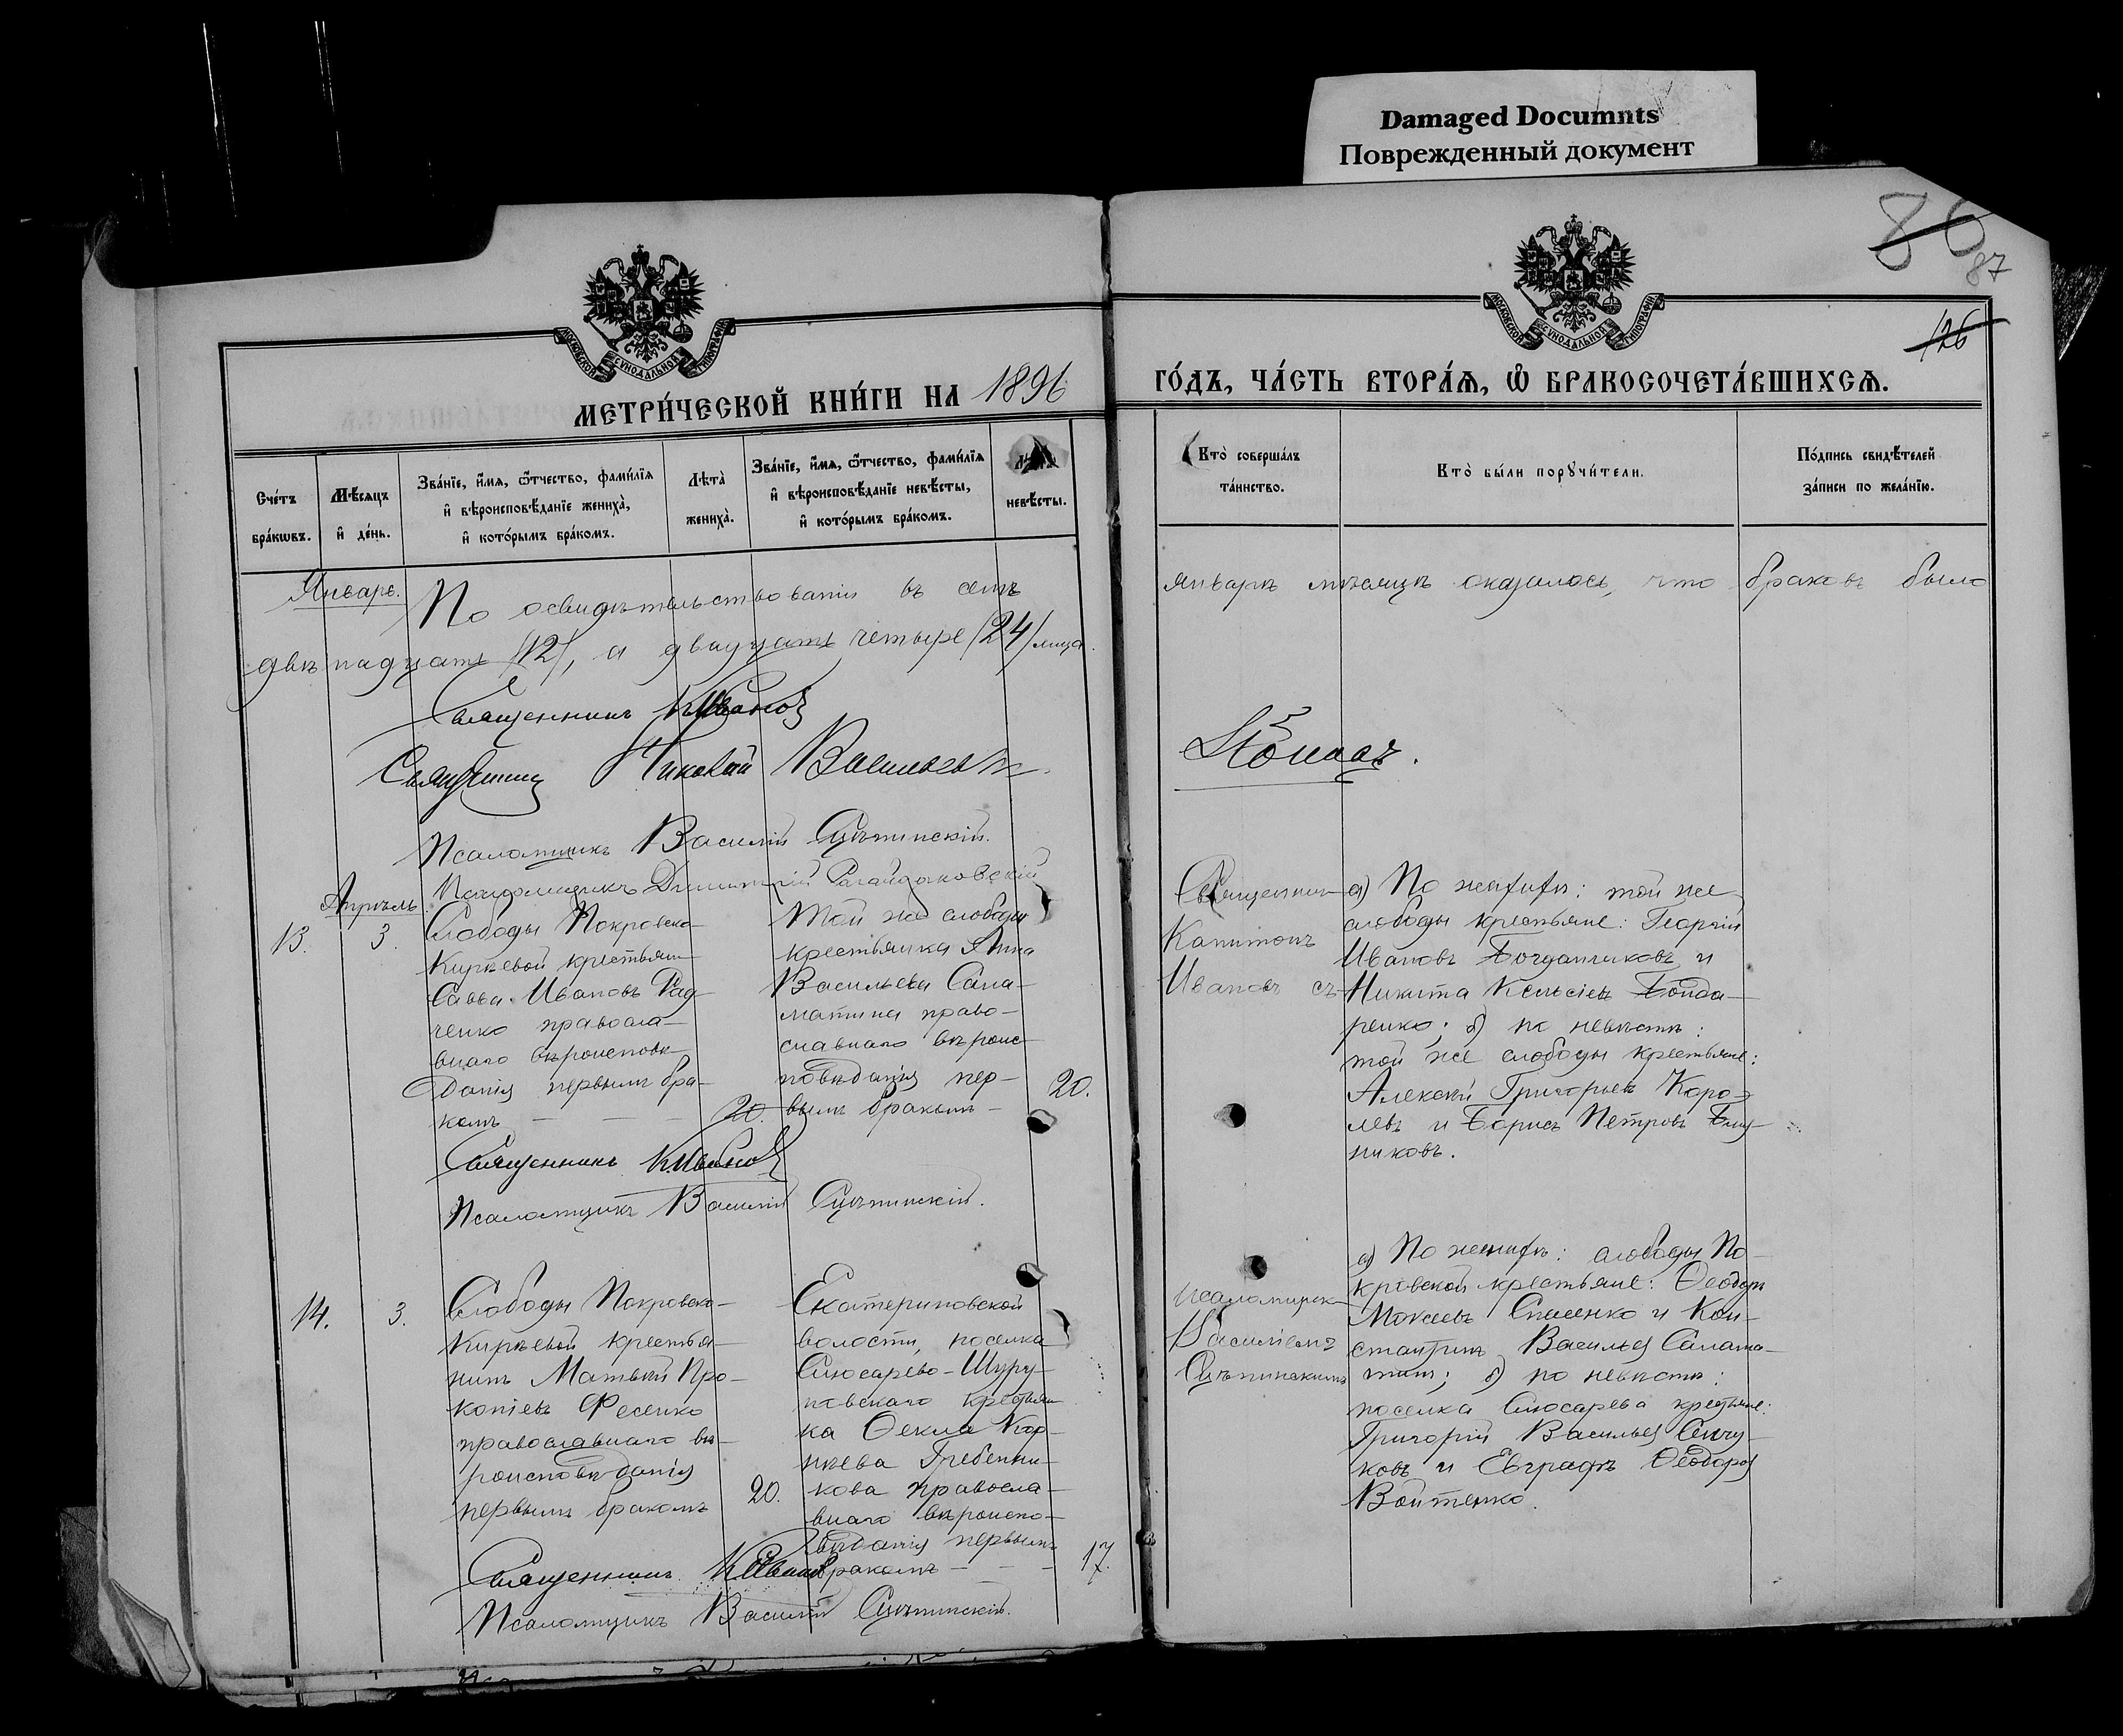 Damaged Documnts
Поврежденный документ
80
87
126
МОСКОВСКОЙ СУНОДАЛЬНОЙ ТИПОГРАФІИ
МОСКОВСКОЙ СУНОДАЛЬНОЙ ТИПОГРАФІИ
МЕТРИ́ЧЕСКОЙ КНИ́ГИ НА 1896
ГО́ДЪ, ЧА́СТЬ ВТОРА́Я, Ѽ БРАКОСОЧЕТА́ВШИХСЯ.
Сче́тъ бра́кѡвъ.
Мѣ́сяцъ и҆ де́нь.
Зва́нїе, и҆́мя, ѻ҆́тчество, фами́лїя
и҆ вѣроисповѣ́данїе жениха̀,
и҆ кото́рымъ бра́комъ.
Лѣта̀ жениха̀.
Зва́нїе, и҆́мя, ѻ҆́тчество, фами́лїя
и҆ вѣроисповѣ́данїе невѣ́сты,
и҆ кото́рымъ бра́комъ.
невѣ́сты.
Кто̀ соверша́лъ
та́инство.
Кто̀ бы́ли порꙋчи́тели.
По́дпись свидѣ́телей
за́писи по жела́нїю.
Январь.
По освидѣтельствованіи въ семъ
январѣ мѣсяцѣ оказалось, что браковъ было
двѣнадцать /12/, а двадцать четыре /24/ лица.
Священникъ К Ивановъ
Священникъ Николай Васильевъ
Псаломщикъ Василій
Псаломщикъ Димитрій
Апрѣль
13.
3.
Слободы Покровско-
Кирѣевой крестьян
Савва Ивановъ Рад-
ченко правосла-
внаго вѣроисповѣ-
данія первымъ бра-
комъ
20.
Той же слободы
крестьянка Анна
Васильева Сала-
матина право-
славнаго вѣроис-
повѣданія пер-
вымъ бракомъ
20.
Священник
Капитонъ
Ивановъ съ
а) По женихѣ: той же
слободы крестьяне: Георгій
Ивановъ Богданчиковъ и
Никита Бонда-
ренко; б) по невѣстѣ:
той же слободы крестьяне:
Алексѣй Григорьевъ Коро-
левъ и Борисъ Петровъ
никовъ.
Священникъ К Ивановъ
Псаломщикъ Василій
14.
3.
Слободы Покровско-
Кирѣевой крестья-
нинъ Матвѣй Про-
копіевъ Фесенко
православнаго вѣ-
роисповѣданія
первымъ бракомъ
20.
Екатериновской
волости, поселка
Слюсарево-Шуру-
повскаго крестьян
ка Ѳекла Кор-
нѣева Гребенни-
кова правосла-
внаго вѣроиспо-
вѣданія первымъ
бракомъ
17.
псаломщик
Василіемъ
а) По женихѣ: слободы По-
кровской крестьяне: Ѳеодоръ
и Кон-
стантинъ Васильев Салама-
тин; б) по невѣстѣ:
поселка Слюсарева крестьяне:
Григорій Васильев
ковъ и Евграфъ Ѳеодоров
Войтенко.
Священникъ К Ивановъ
Псаломщикъ Василій